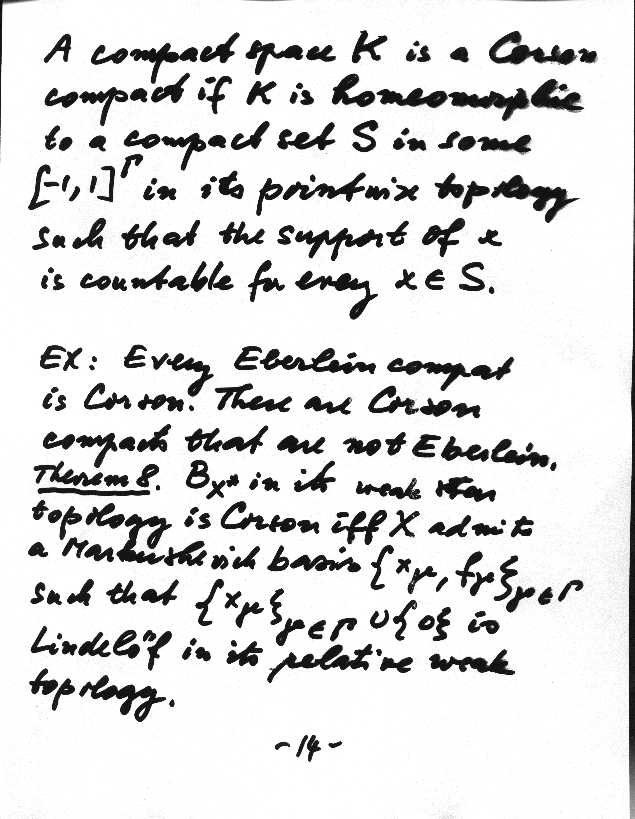 A compact space K is a Corson
compact if K is homeomorphic
to a compact set S in some
[-1,1]^Γ in its pointwix topology
such that the support of x
is countable for every x ∈ S.
EX: Every Eberlein compat
is Corson. There are Corson
compacts that are not Eberlein.
Theorem 8. B_X* in its weak star
topology is Corson iff X admits
a Markushevich basis {x_γ, f_γ}_γ∈Γ
such that {x_γ}_γ∈Γ ∪ {0} is
Lindelöf in its relative weak
topology.
-14-